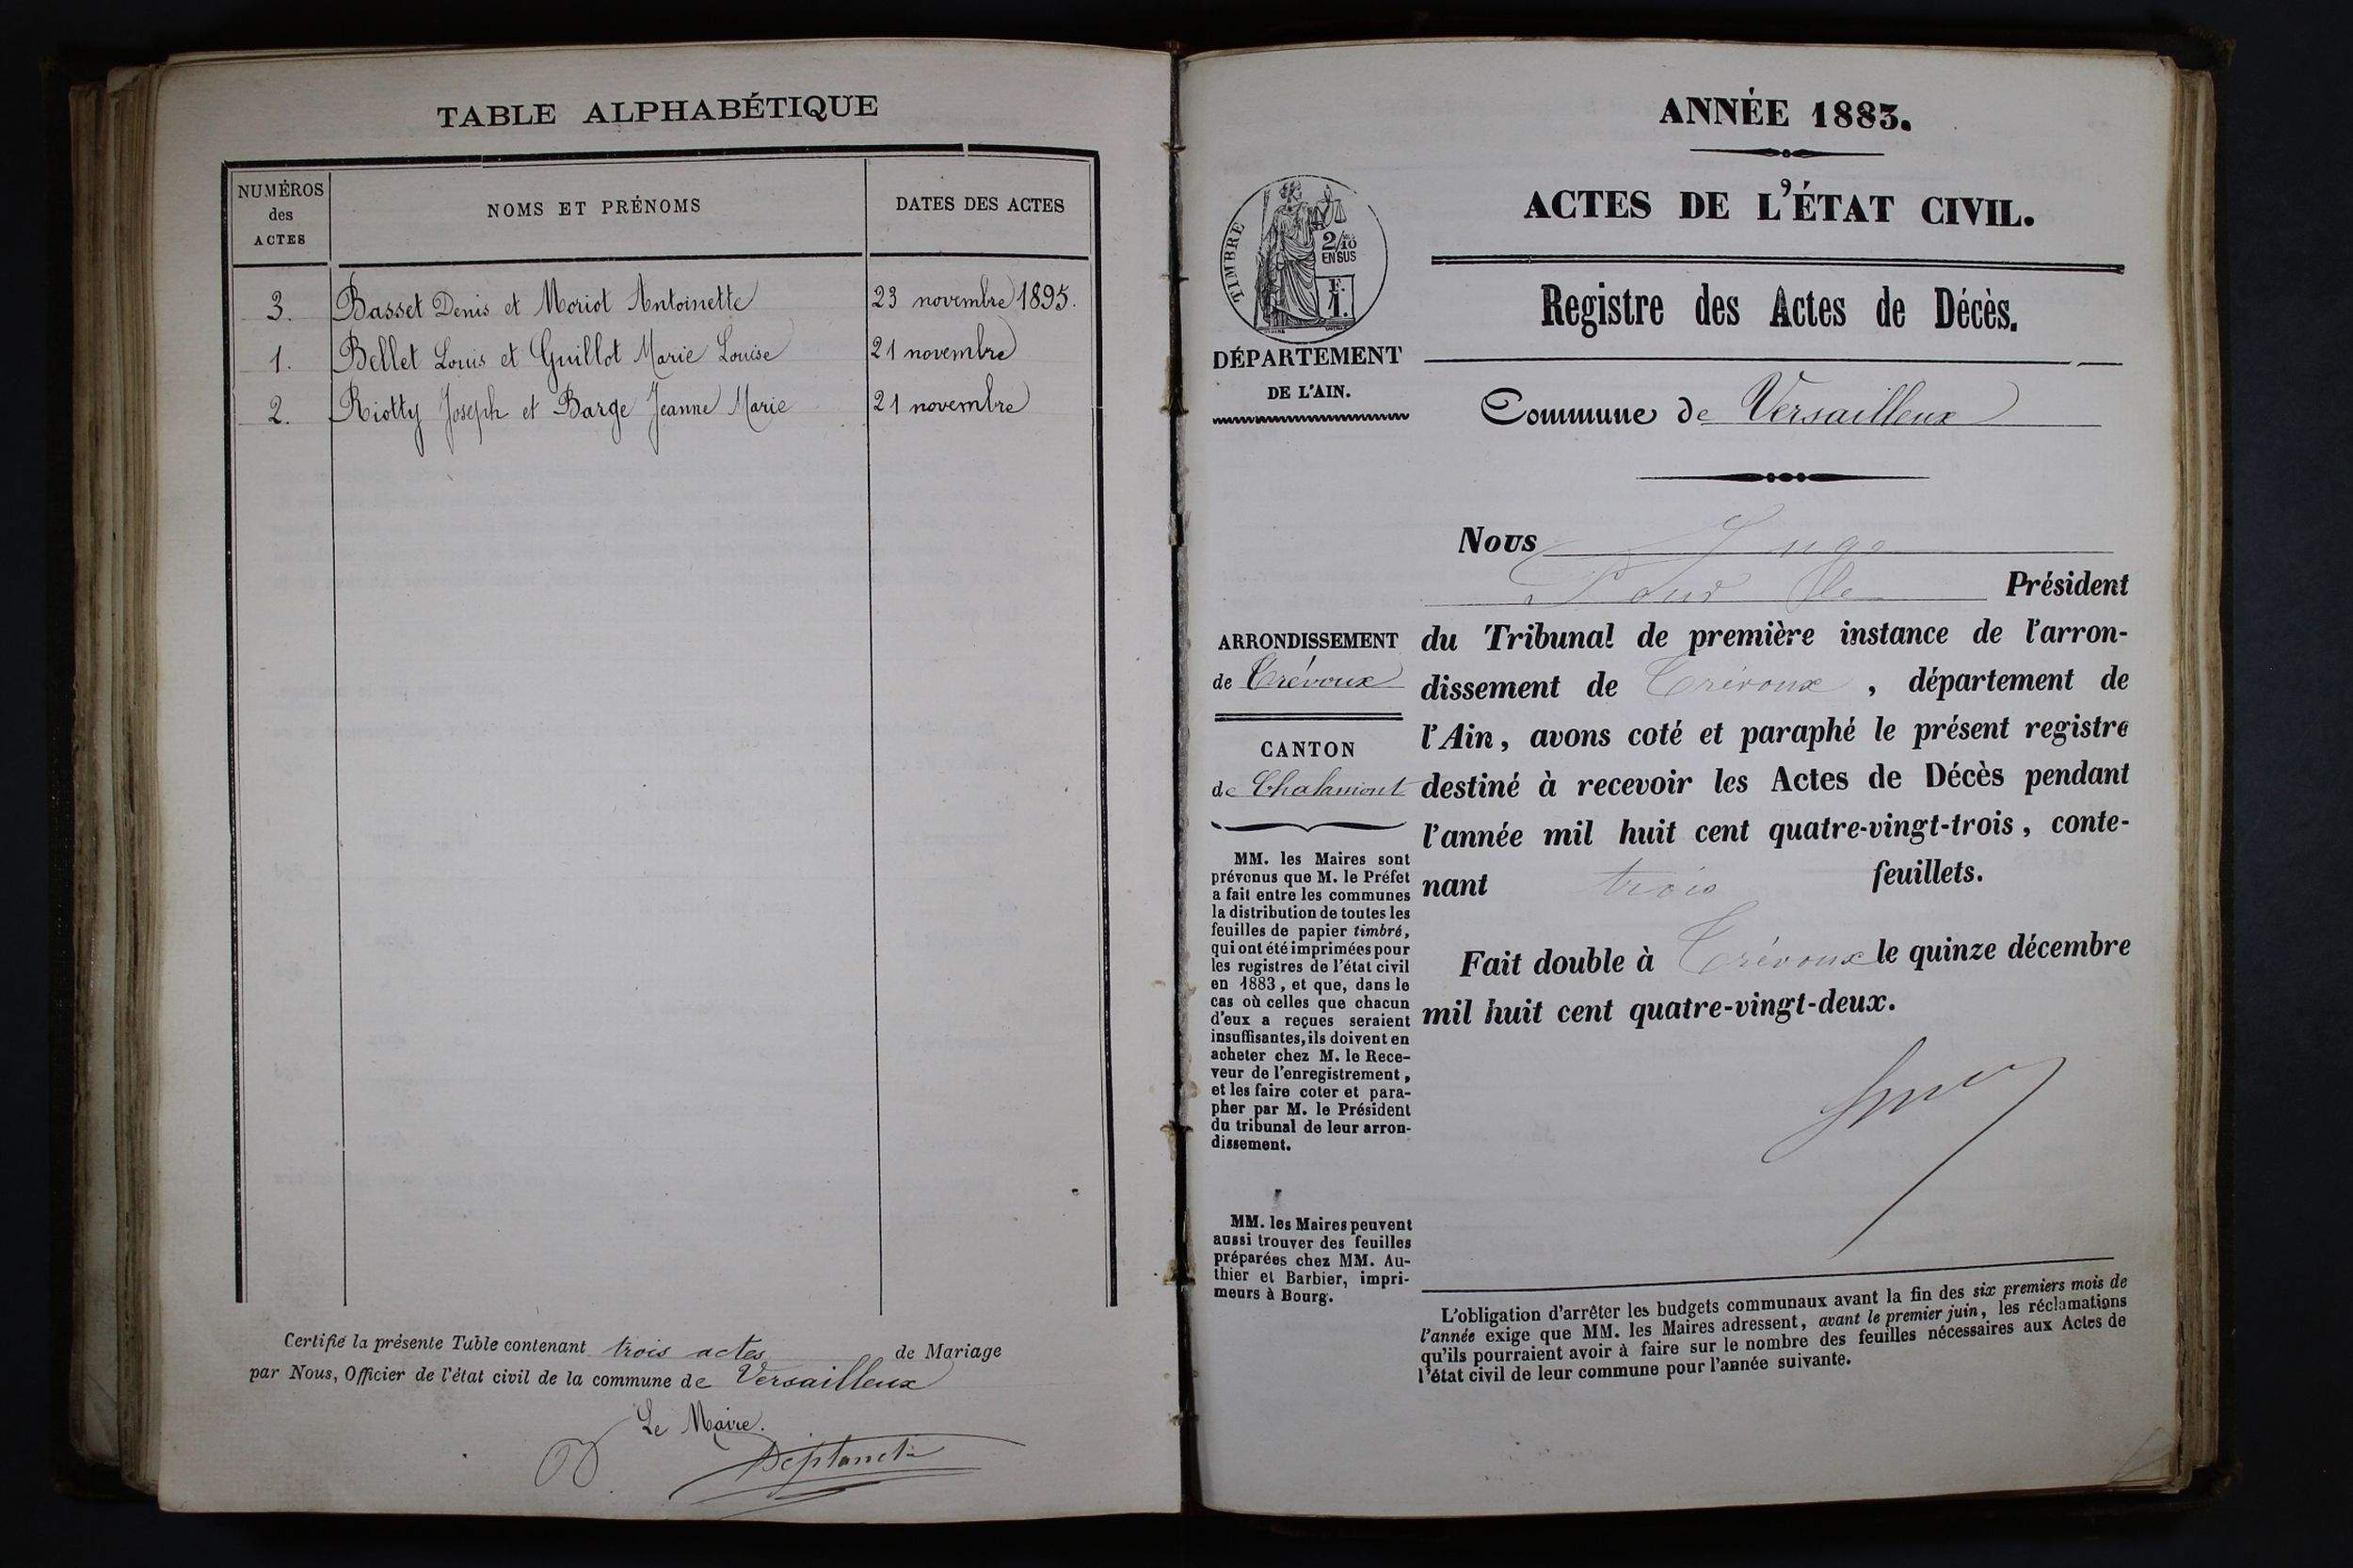 TABLE ALPHABÉTIQUE
NUMÉROS
des
ACTES
NOMS ET PRÉNOMS
DATES DES ACTES
3. Basset Denis et Moriot Antoinette 23 novembre 1895.
1. Bellet Louis et Guillot Marie Louise 21 novembre
2. Riotty Joseph et Barge Jeanne Marie 21 novembre
Certifié la présente Table contenant trois actes de Mariage
par Nous, Officier de l'état civil de la commune de Versailleux
Le Maire.
ANNÉE 1883.
ACTES DE L'ÉTAT CIVIL.
Registre des Actes de Décès.
Commune de Versailleux
TIMBRE
2/10
EN SUS
F.
1.
DÉPARTEMENT
DE L'AIN.
ARRONDISSEMENT
de Trévoux
CANTON
de Chalamont
MM. les Maires sont
prévenus que M. le Préfet
a fait entre les communes
la distribution de toutes les
feuilles de papier timbré,
qui ont été imprimées pour
les registres de l'état civil
en 1883, et que, dans le
cas où celles que chacun
d'eux a reçues seraient
insuffisantes, ils doivent en
acheter chez M. le Rece-
veur de l'enregistrement,
et les faire coter et para-
pher par M. le Président
du tribunal de leur arron-
dissement.
MM. les Maires peuvent
aussi trouver des feuilles
préparées chez MM. Au-
thier et Barbier, impri-
meurs à Bourg.
Nous Juge
Pour le Président
du Tribunal de première instance de l'arron-
dissement de Trévoux, département de
l'Ain, avons coté et paraphé le présent registre
destiné à recevoir les Actes de Décès pendant
l'année mil huit cent quatre-vingt-trois, conte-
nant trois feuillets.
Fait double à Trévoux le quinze décembre
mil huit cent quatre-vingt-deux.
L'obligation d'arrêter les budgets communaux avant la fin des six premiers mois de
l'année exige que MM. les Maires adressent, avant le premier juin, les réclamations
qu'ils pourraient avoir à faire sur le nombre des feuilles nécessaires aux Actes de
l'état civil de leur commune pour l'année suivante.